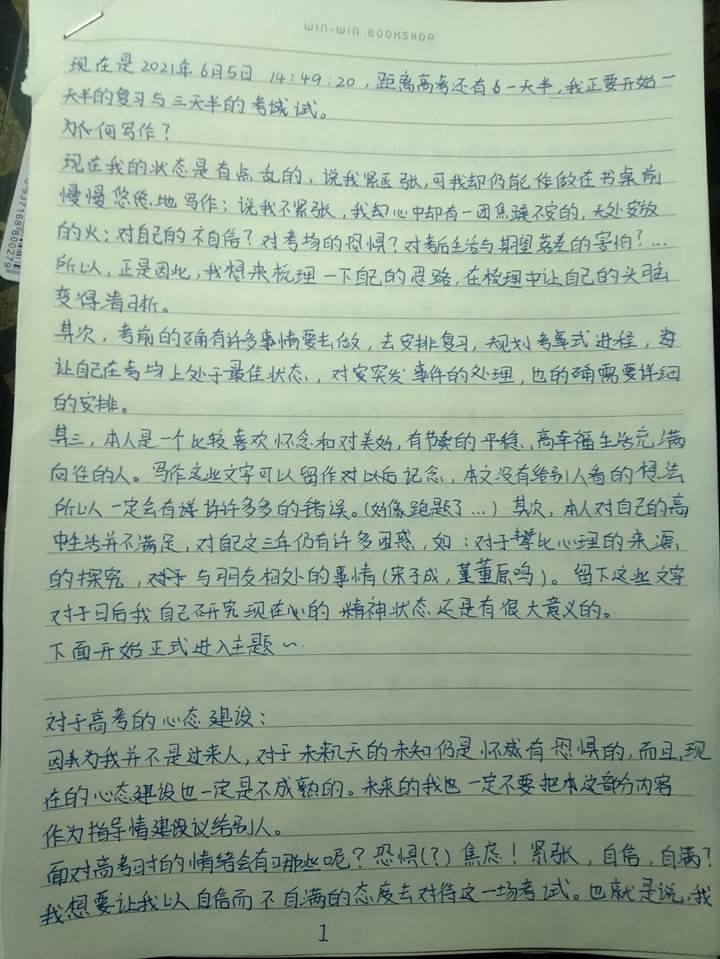 WIN-WIN BOOKSHOP
现在是2021年6月5日 14:49:20，距离高考还有一天半，我正要开始一
天半的复习与三天半的考试。
为何写作？
现在我的状态是有点乱的，说我紧张，可我却仍能做在书桌前
慢慢悠悠地写作；说我不紧张，我心中却有一团焦躁不安的，无处安放
的火；对自己的不自信？对考场的恐惧？对考后生活与期望落差的害怕？…
所以，正是因此，我想来梳理一下自己的思路，在梳理中让自己的头脑
变得清晰。
其次，考前的确有许多事情要去做，去安排复习，规划考试进程，
让自己在考场上处于最佳状态，对突发事件的处理，也的确需要详细
的安排。
其三，本人是一个比较喜欢怀念和对美好，有节奏的平稳、幸福生活充满
向往的人。写作这些文字可以留作对以后记念，本文没有给别人看的想法
所以一定会有许许多多的错误。（好像跑题了…）其次，本人对自己的高
中生活并不满足，对自己这三年仍有许多困惑，如：对于攀比心理的来源
的探究，与朋友相处的事情（宋子成，董原鸣）。留下这些文字
对于日后我自己研究现在心的精神状态还是有很大意义的。
下面开始正式进入主题~
对于高考的心态建设：
因为我并不是过来人，对于未来几天的未知仍是怀有恐惧的，而且，现
在的心态建设也一定是不成熟的。未来的我也一定不要把本这部分内容
作为指导建议给别人。
面对高考时的情绪会有哪些呢？恐惧(?) 焦虑！紧张，自信，自满？
我想要让我以自信而不自满的态度去对待这一场考试。也就是说，我
1
9371688002 79